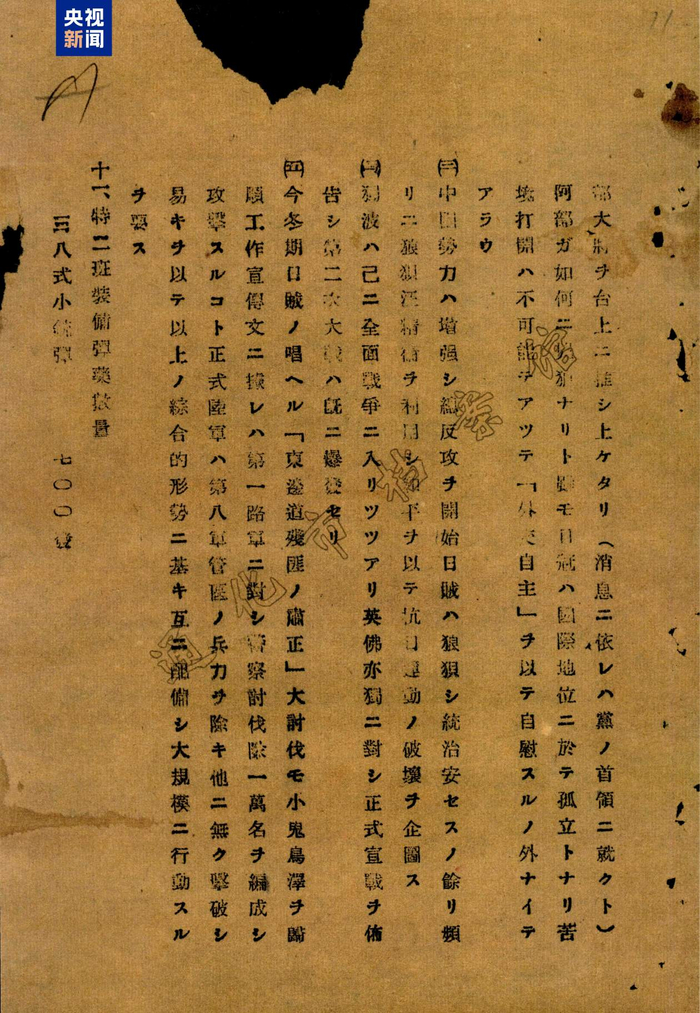 央视
新闻
11
部大將ヲ台上ニ推シ上ケタリ(消息ニ依レハ黨ノ首領ニ就クト)
阿部ガ如何ニ ナリト雖モ日冠ハ國際地位ニ於テ孤立トナリ苦
境打開ハ不可能デアツテ「外交自主」ヲ以テ自慰スルノ外ナイデ
アラウ
㈢中國勢力ハ增强シ總反攻ヲ開始日賊ハ狼狽シ統治安セスノ餘リ頻
リニ狼狽 精衛ヲ利用シ和平ヲ以テ抗日運動ノ破壞ヲ企圖ス
㈣獨波ハ己ニ全面戰爭ニ入リツツアリ英佛亦獨ニ對シ正式宣戰ヲ佈
告シ第二次大戰ハ既ニ爆發セリ
㈤今冬期日賊ノ唱ヘル「東邊道殘匪ノ肅正」大討伐モ小鬼鳥澤ヲ歸
順工作宣傳文ニ據レハ第一路軍ニ對シ警察討伐隊一萬名ヲ編成シ
攻擊スルコト正式陸軍ハ第八軍管區ノ兵力ヲ除キ他ニ無ク擊破シ
易キヲ以テ以上ノ綜合的形勢ニ基キ互ニ配備シ大規模ニ行動スル
ヲ要ス
十一、特二班裝備彈藥數量
三八式小銃彈 七〇〇發
通化市档案馆